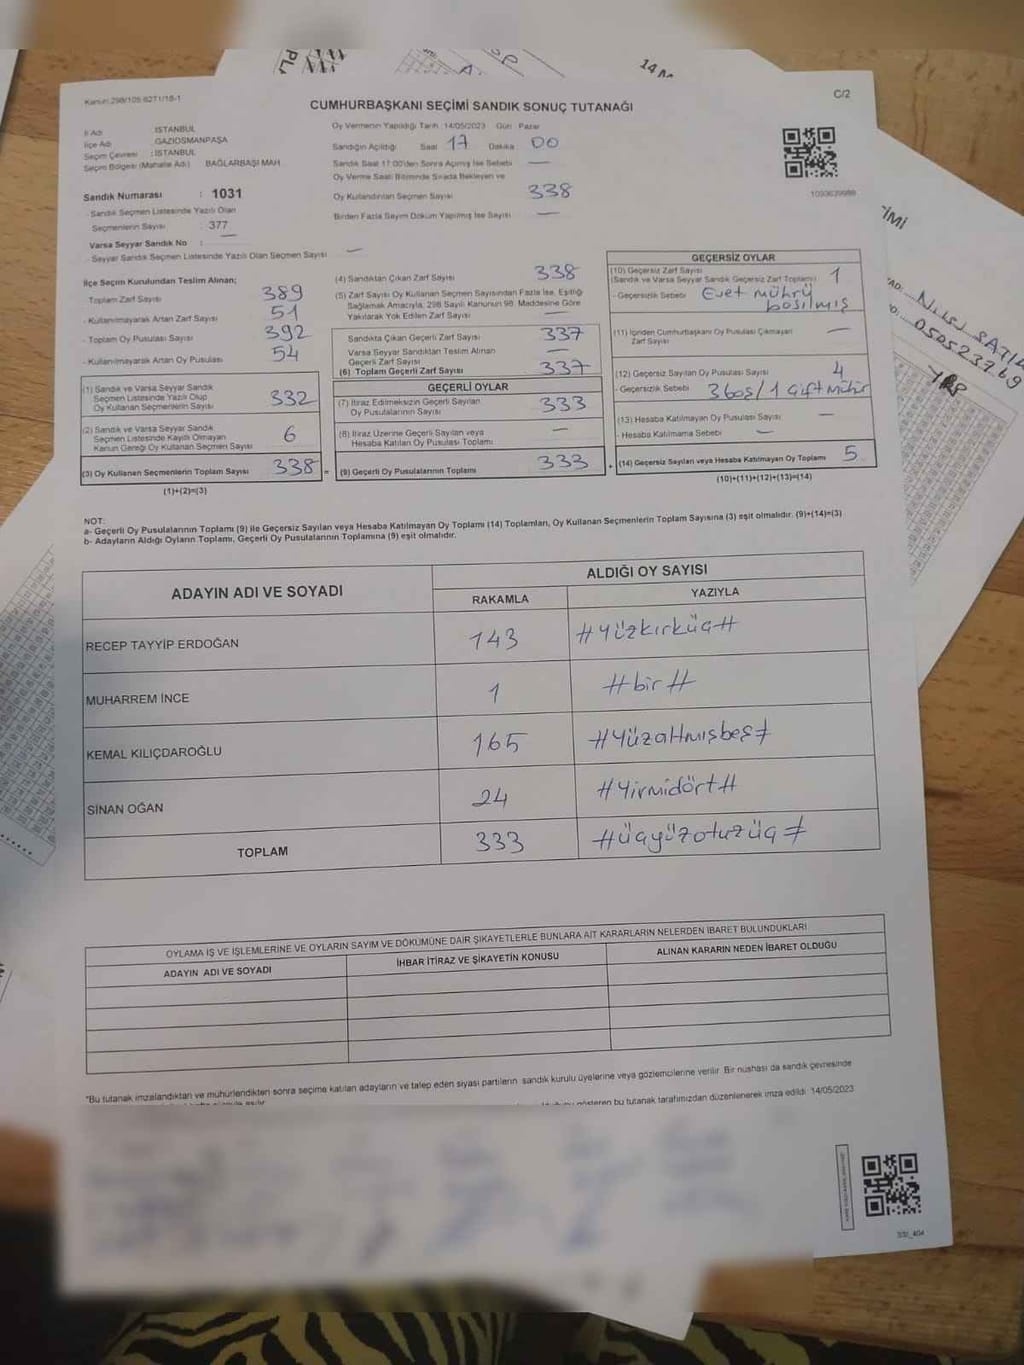 14 M
Kanun 298/105-6271/18-1
C/2
CUMHURBAŞKANI SEÇİMİ SANDIK SONUÇ TUTANAĞI
İl Adı : İSTANBUL
İlçe Adı : GAZİOSMANPAŞA
Seçim Çevresi : İSTANBUL
Seçim Bölgesi (Mahalle Adı) BAĞLARBAŞI MAH.
Sandık Numarası : 1031
- Sandık Seçmen Listesinde Yazılı Olan
Seçmenlerin Sayısı : 377
Varsa Seyyar Sandık No :
- Seyyar Sandık Seçmen Listesinde Yazılı Olan Seçmen Sayısı —
Oy Vermenin Yapıldığı Tarih :14/05/2023 Gün : Pazar
Sandığın Açıldığı Saat 17 Dakika 00
Sandık Saat 17:00'den Sonra Açılmış İse Sebebi —
Oy Verme Saati Bitiminde Sırada Bekleyen ve
Oy Kullandırılan Seçmen Sayısı 338
Birden Fazla Sayım Döküm Yapılmış İse Sayısı —
1093639988
İlçe Seçim Kurulundan Teslim Alınan;
Toplam Zarf Sayısı 389
- Kullanılmayarak Artan Zarf Sayısı 51
- Toplam Oy Pusulası Sayısı 392
- Kullanılmayarak Artan Oy Pusulası 54
(1) Sandık ve Varsa Seyyar Sandık
Seçmen Listesinde Yazılı Olup
Oy Kullanan Seçmenlerin Sayısı 332
(2) Sandık ve Varsa Seyyar Sandık
Seçmen Listesinde Kayıtlı Olmayan
Kanun Gereği Oy Kullanan Seçmen Sayısı 6
(3) Oy Kullanan Seçmenlerin Toplam Sayısı 338 =
(1)+(2)=(3)
(4) Sandıktan Çıkan Zarf Sayısı 338
(5) Zarf Sayısı Oy Kullanan Seçmen Sayısından Fazla İse, Eşitliği
Sağlamak Amacıyla, 298 Sayılı Kanunun 98. Maddesine Göre
Yakılarak Yok Edilen Zarf Sayısı —
Sandıkta Çıkan Geçerli Zarf Sayısı 337
Varsa Seyyar Sandıktan Teslim Alınan
Geçerli Zarf Sayısı —
(6) Toplam Geçerli Zarf Sayısı 337
GEÇERLİ OYLAR
(7) İtiraz Edilmeksizin Geçerli Sayılan
Oy Pusulalarının Sayısı 333
(8) İtiraz Üzerine Geçerli Sayılan veya
Hesaba Katılan Oy Pusulası Toplamı —
(9) Geçerli Oy Pusulalarının Toplamı 333 +
GEÇERSİZ OYLAR
(10) Geçersiz Zarf Sayısı
(Sandık ve Varsa Seyyar Sandık Geçersiz Zarf Toplamı) 1
- Geçersizlik Sebebi Evet mührü
basılmış
(11) İçinden Cumhurbaşkanı Oy Pusulası Çıkmayan
Zarf Sayısı —
(12) Geçersiz Sayılan Oy Pusulası Sayısı 4
- Geçersizlik Sebebi 3 boş/1 Çift mühür
(13) Hesaba Katılmayan Oy Pusulası Sayısı —
- Hesaba Katılmama Sebebi —
(14) Geçersiz Sayılan veya Hesaba Katılmayan Oy Toplamı 5
(10)+(11)+(12)+(13)=(14)
NOT:
a- Geçerli Oy Pusulalarının Toplamı (9) ile Geçersiz Sayılan veya Hesaba Katılmayan Oy Toplamı (14) Toplamları, Oy Kullanan Seçmenlerin Toplam Sayısına (3) eşit olmalıdır. (9)+(14)=(3)
b- Adayların Aldığı Oyların Toplamı, Geçerli Oy Pusulalarının Toplamına (9) eşit olmalıdır.
ADAYIN ADI VE SOYADI
ALDIĞI OY SAYISI
RAKAMLA YAZIYLA
RECEP TAYYİP ERDOĞAN 143 #Yüzkırküç#
MUHARREM İNCE 1 #bir#
KEMAL KILIÇDAROĞLU 165 #Yüzaltmışbeş#
SİNAN OĞAN 24 #Yirmidört#
TOPLAM 333 #üçyüzotuzüç#
OYLAMA İŞ VE İŞLEMLERİNE VE OYLARIN SAYIM VE DÖKÜMÜNE DAİR ŞİKAYETLERLE BUNLARA AİT KARARLARIN NELERDEN İBARET BULUNDUKLARI
ADAYIN ADI VE SOYADI İHBAR İTİRAZ VE ŞİKAYETİN KONUSU ALINAN KARARIN NEDEN İBARET OLDUĞU
*Bu tutanak imzalandıktan ve mühürlendikten sonra seçime katılan adayların ve talep eden siyasi partilerin sandık kurulu üyelerine veya gözlemcilerine verilir. Bir nüshası da sandık çevresinde
gösteren bu tutanak tarafımızdan düzenlenerek imza edildi. 14/05/2023